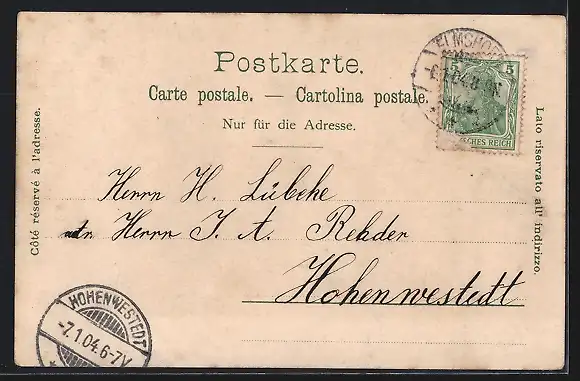 Postkarte.
Carte postale. — Cartolina postale.
Nur für die Adresse.
Côté réservé à l'adresse.
Lato riservato all' indirizzo.
Herrn H. Lübcke
Herrn J. A. Rehder
Hohenwestedt
HOHENWESTEDT
-7.1.04.6-7V
ELMSHO
5 5
REICH